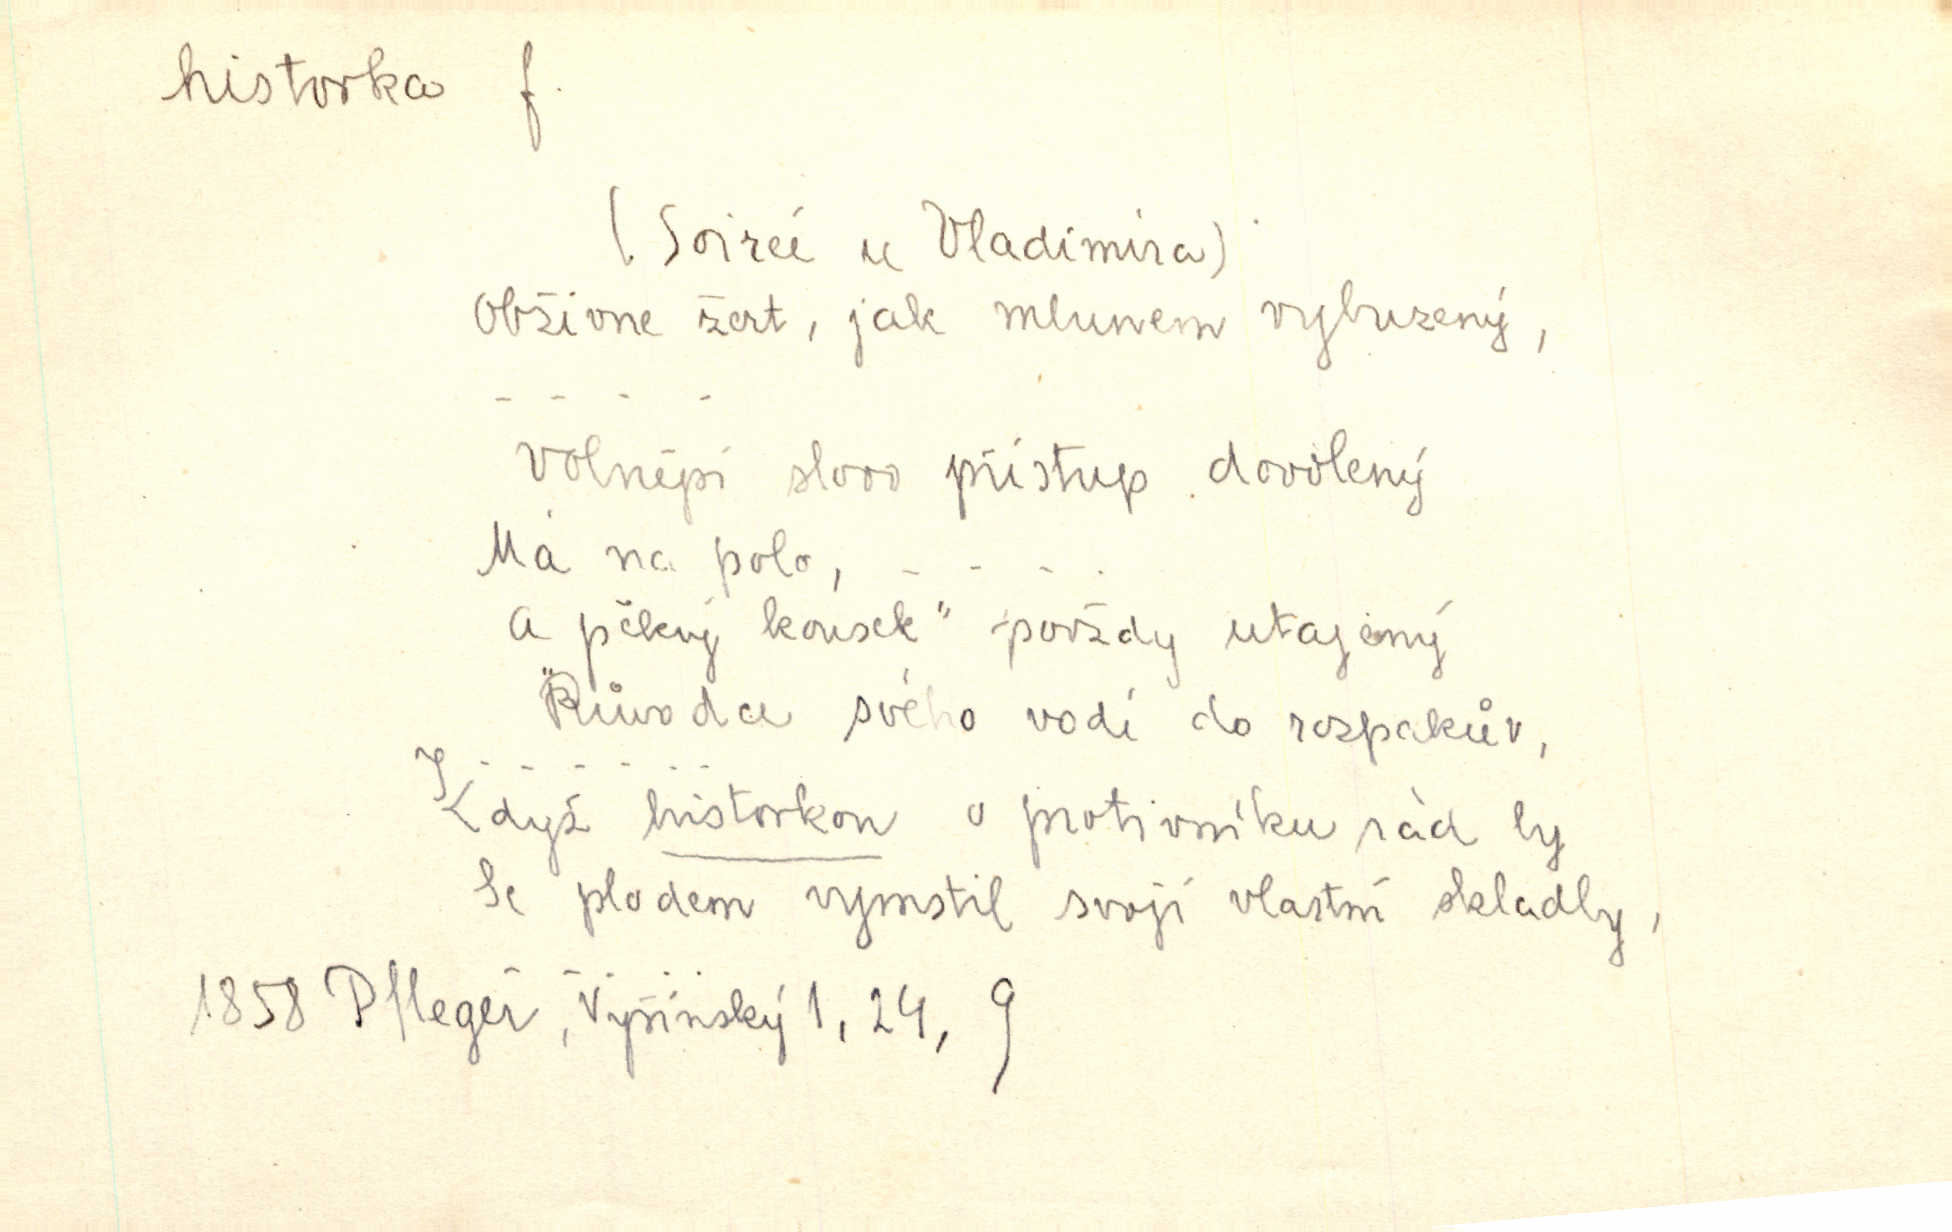 historka f.
(Soireé u Vladimíra)
Obživne žert, jak mlunem vybuzený,
- - - -
Volnější slovo přístup dovolený
Má na polo, - - - -
a pěkný kousek" povždy utajený
"Původce svého vodí do rozpakův,
- - - - - -
Když historkou o protivníku rád by
Se plodem vymstil svojí vlastní skladby,
- - - -
1858 Pfleger, Vyšínský 1, 24, 9